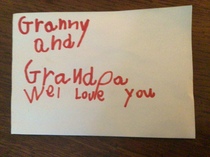 Granny
and
Grandpa
Wei Love you